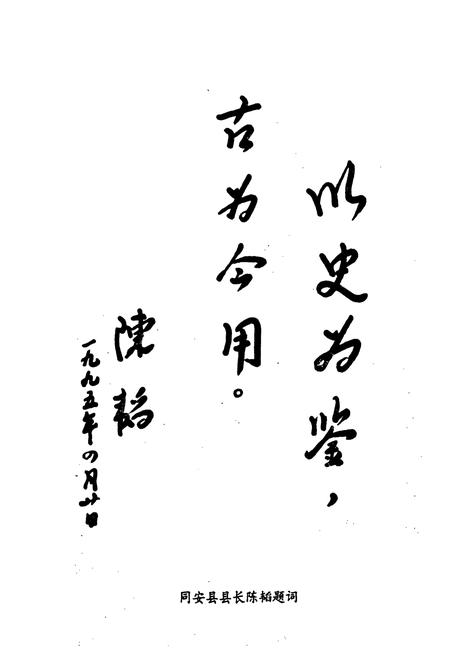 以史为鉴，
古为今用。
陳韬
一九九五年四月廿日
同安县县长陈韬题词